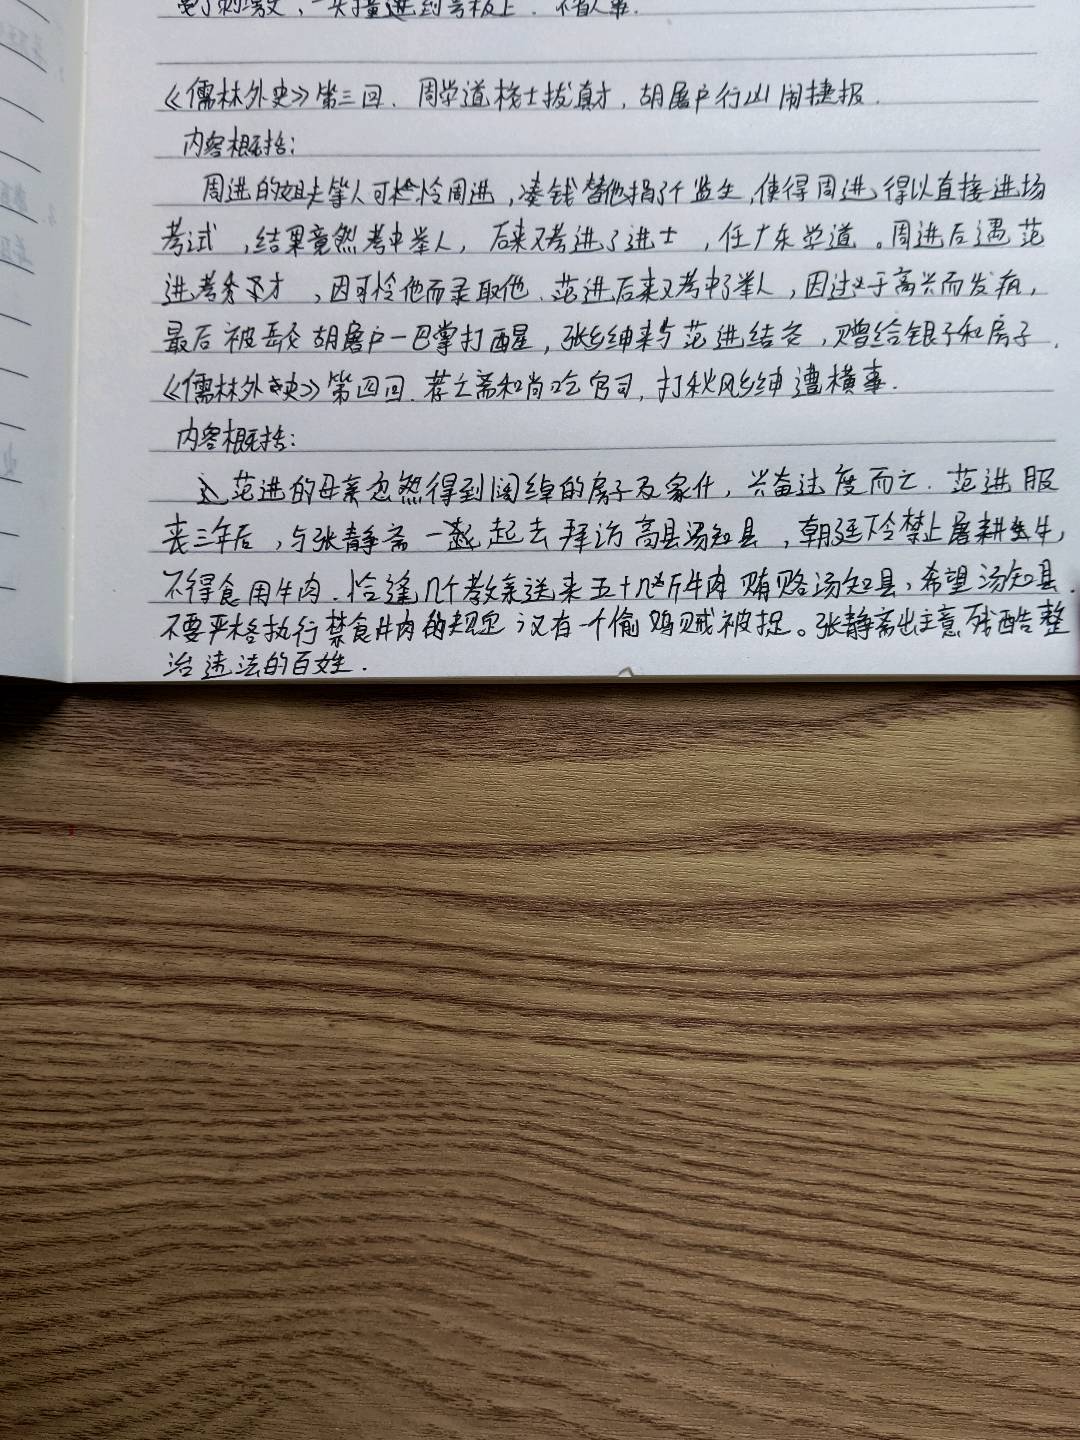 受了刺激，一头撞进到号板上．不省人事．
《儒林外史》第三回．周学道校士拔真才，胡屠户行凶闹捷报．
内容概括：
周进的姐夫等人可怜周进，凑钱替他捐了个监生，使得周进得以直接进场
考试，结果竟然考中举人，后来又考进了进士，任广东学道。周进后遇范
进考秀才，因可怜他而录取他．范进后来又考中了举人，因过于高兴而发疯，
最后被岳父胡屠户一巴掌打醒，张乡绅来与范进结交，赠给银子和房子．
《儒林外史》第四回．荐亡斋和尚吃官司，打秋风乡绅遭横事．
内容概括：
范进的母亲忽然得到阔绰的房子及家什，兴奋过度而亡．范进服
丧三年后，与张静斋一起去拜访高县汤知县，朝廷下令禁止屠耕牛，
不得食用牛肉．恰逢几个教亲送来五十几斤牛肉贿赂汤知县，希望汤知县
不要严格执行禁食牛肉的规定，又有一个偷鸡贼被捉。张静斋出主意残酷整
治违法的百姓．